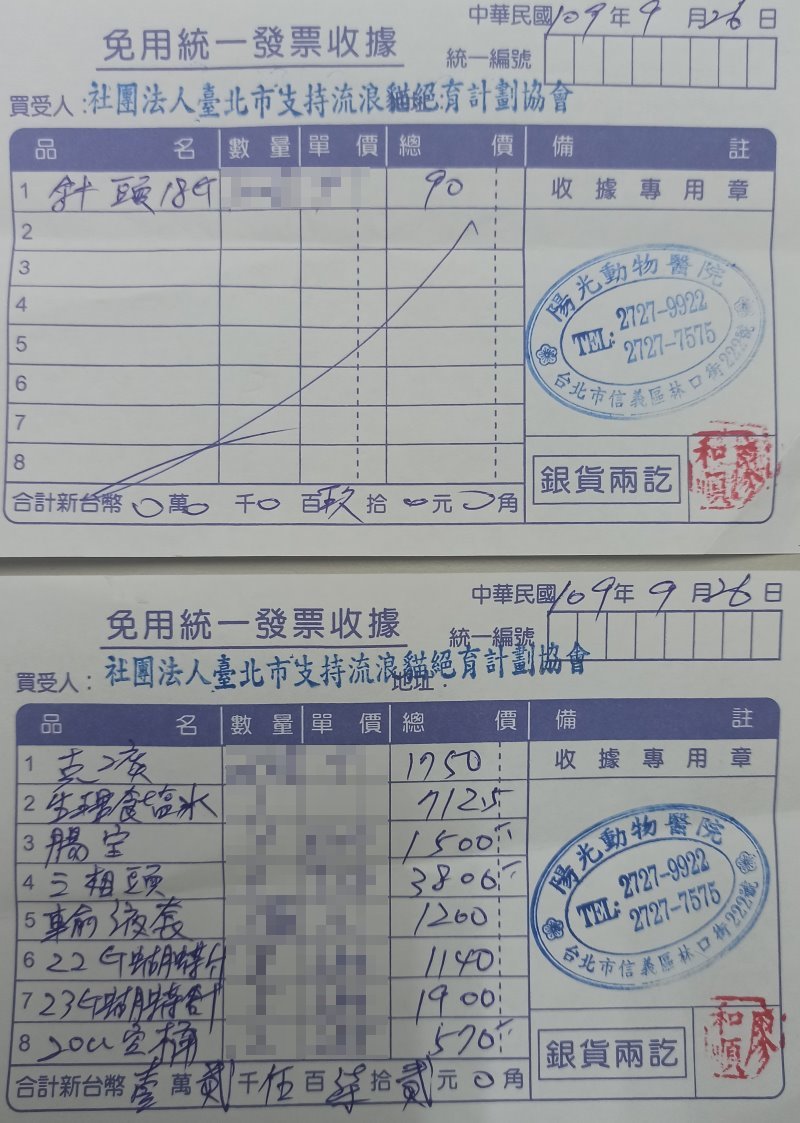 中華民國109年9月26日
免用統一發票收據
統一編號
買受人:社團法人臺北市支持流浪貓絕育計劃協會
品名 數量 單價 總價 備註
1 針頭18G 90 收據專用章
2
3
4
5
6
7
8
陽光動物醫院
TEL: 2727-9922
2727-7575
台北市信義區林口街222號
銀貨兩訖
廖和順
合計新台幣 0萬0千0百玖拾0元0角
中華民國109年9月26日
免用統一發票收據
統一編號
買受人:社團法人臺北市支持流浪貓絕育計劃協會
地址:
品名 數量 單價 總價 備註
1 1750 收據專用章
2 生理食塩水 712.5
3 腸宝 1500
4 三相頭 3800
5 輸液套 1200
6 22G蝴蝶針 1140
7 23G蝴蝶針 1900
8 20cc空桶 570
陽光動物醫院
TEL: 2727-9922
2727-7575
台北市信義區林口街222號
銀貨兩訖
廖和順
合計新台幣壹萬貳千伍百柒拾貳元0角